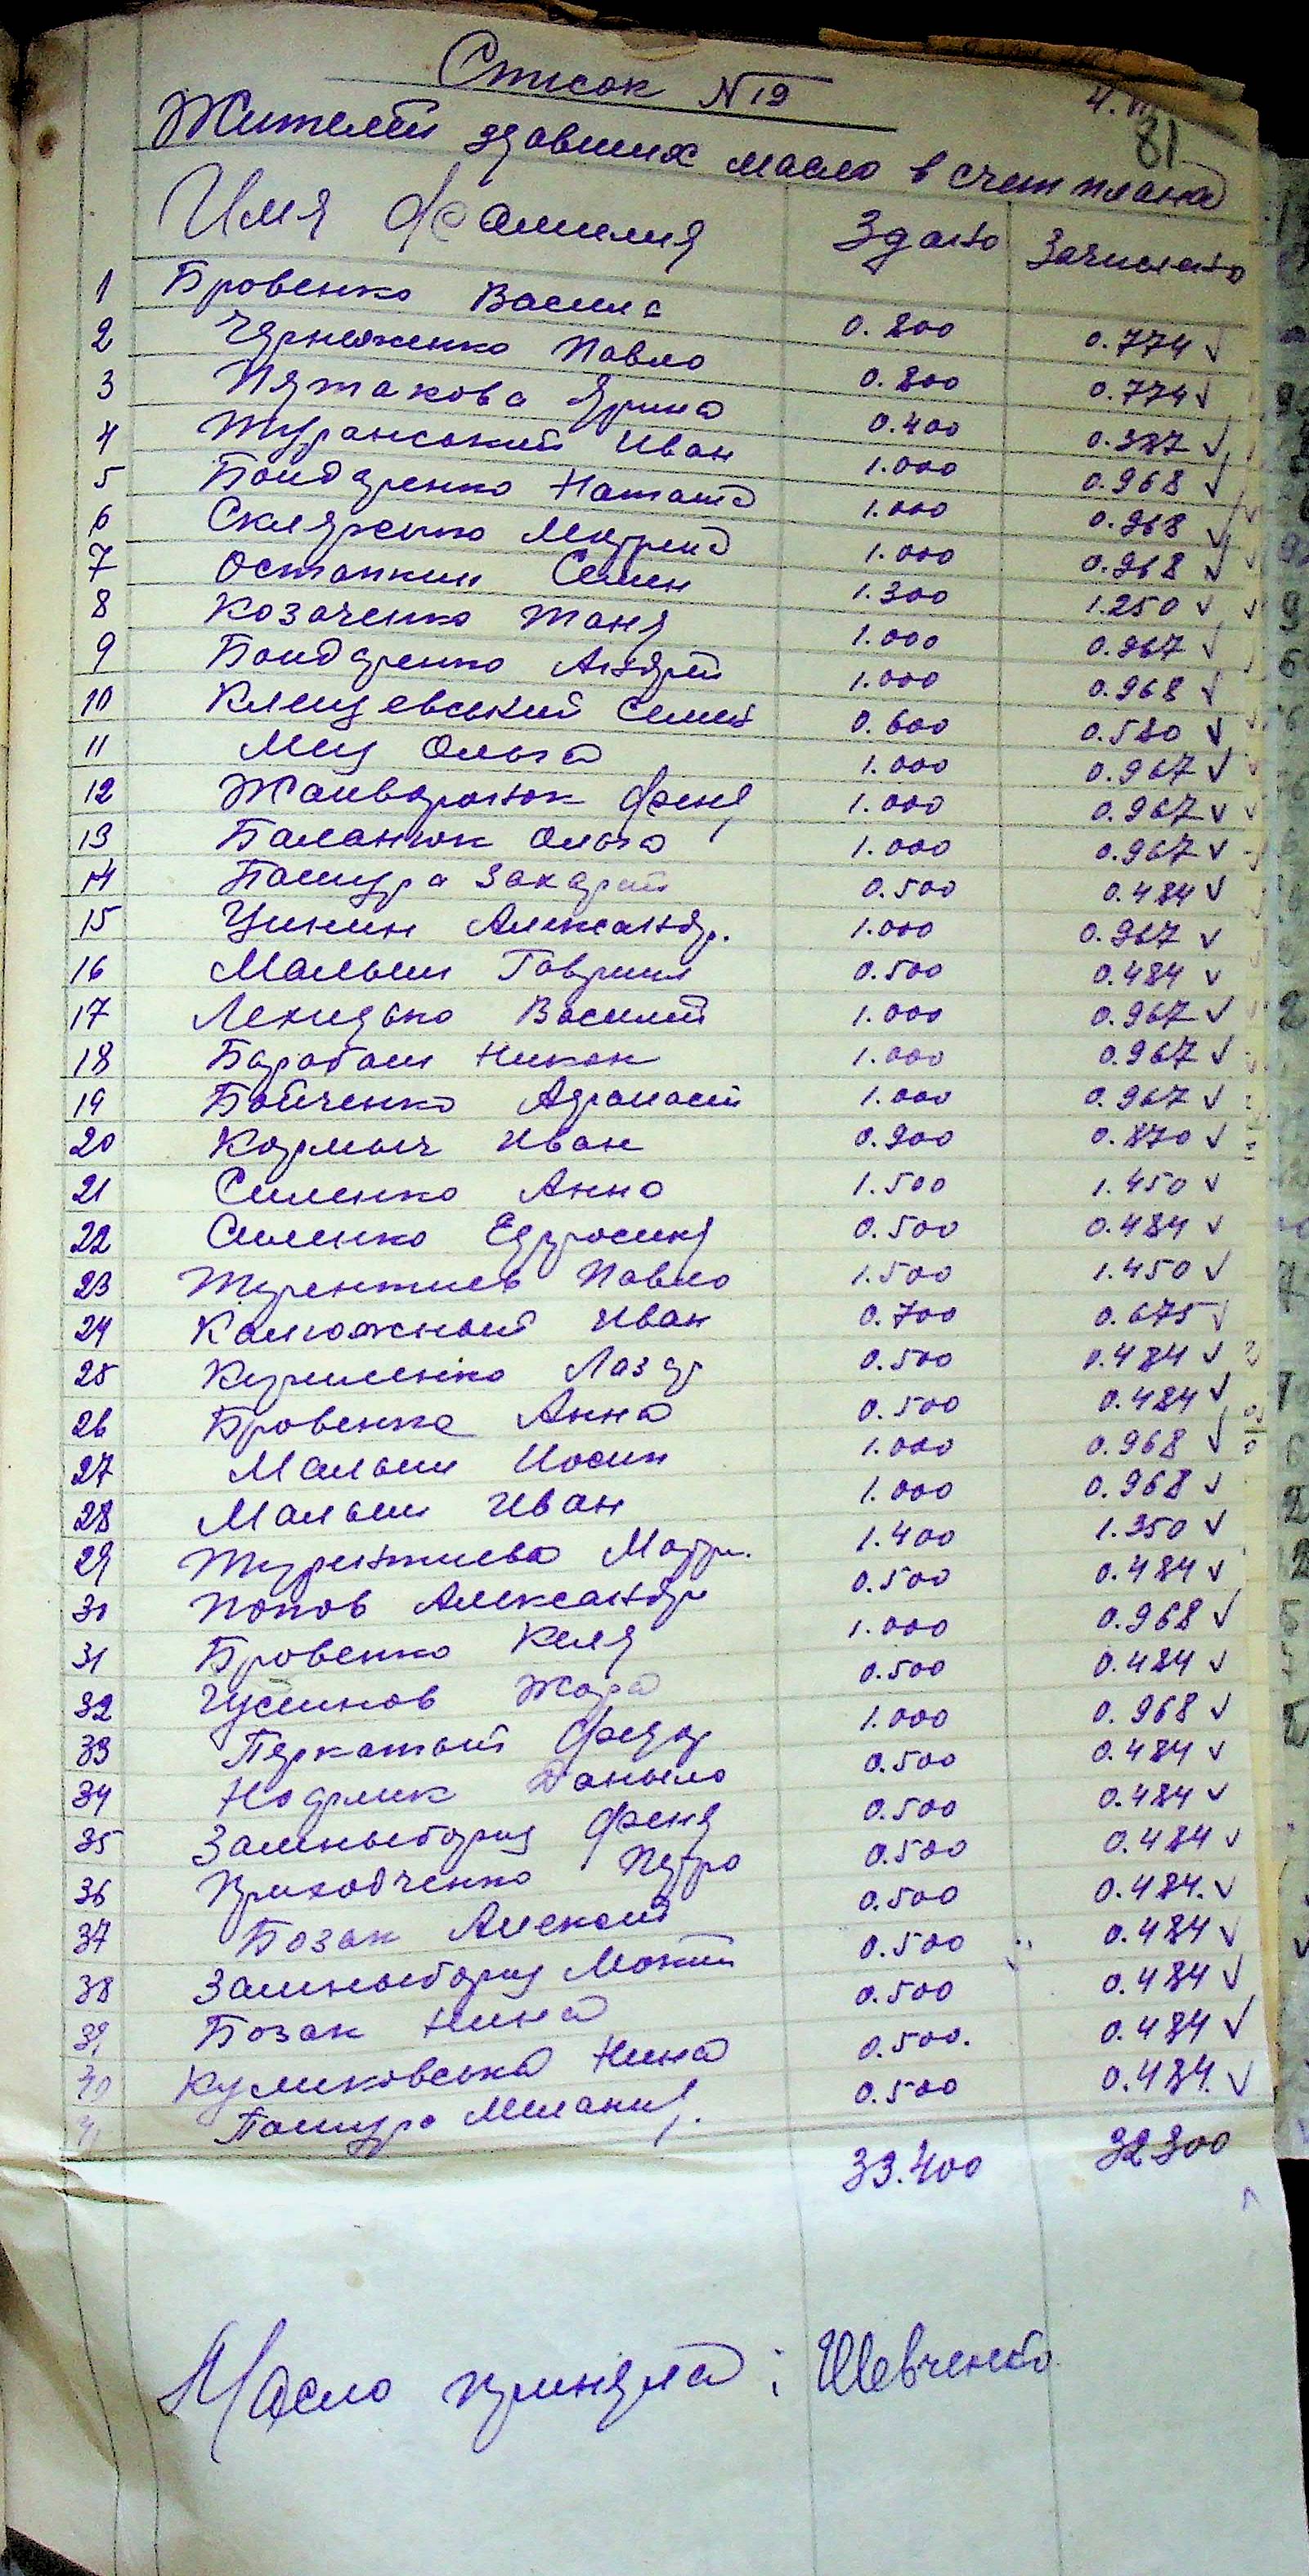 Список N 19
81
Жителей здавших масло в счет плана
Имя Фамилия Здано Зачислено
1 Бровенко Васил 0.800 0.774 ✓
2 Чернеженко Павло 0.800 0.774 ✓
3 Пятакова Ярина 0.400 0.387 ✓
4 Туранський Иван 1.000 0.968 ✓
5 Бондаренко Наташа 1.000 0.968 ✓
6 Скляренко Мотрена 1.000 0.968 ✓
7 Остапкин Семен 1.300 1.250 ✓
8 Козаченко Таня 1.000 0.967 ✓
9 Бондаренко Андрей 1.000 0.968 ✓
10 Клещевський Семен 0.600 0.580 ✓
11 Мец Ольга 1.000 0.967 ✓
12 Жайворонок Феня 1.000 0.967 ✓
13 Баланюк Ольга 1.000 0.967 ✓
14 Пашура Захарий 0.500 0.484 ✓
15 Цинин Александр. 1.000 0.967 ✓
16 Малыш Гаврил 0.500 0.484 ✓
17 Василий 1.000 0.967 ✓
18 Барабаш Никон 1.000 0.967 ✓
19 Бойченко Афанасий 1.000 0.967 ✓
20 Кормыч Иван 0.900 0.870 ✓
21 Силенко Анна 1.500 1.450 ✓
22 Силенко Ефросиня 0.500 0.484 ✓
23 Терентиев Павло 1.500 1.450 ✓
24 Калюжный Иван 0.700 0.675 ✓
25 Кириленко Лазар 0.500 0.484 ✓
26 Бровенко Анна 0.500 0.484 ✓
27 Малыш Иосип 1.000 0.968 ✓
28 Малыш Иван 1.000 0.968 ✓
29 Терентиева Мотр. 1.400 1.350 ✓
30 Попов Александр 0.500 0.484 ✓
31 Бровенко Киля 1.000 0.968 ✓
32 Жора 0.500 0.484 ✓
33 Перкатый Федор 1.000 0.968 ✓
34 Даныло 0.500 0.484 ✓
35 Замныборщ Феня 0.500 0.484 ✓
36 Приходченко Петро 0.500 0.484 ✓
37 Бозак Алексей 0.500 0.484. ✓
38 Замныборщ Мокий 0.500 0.484 ✓
39 Бозак Нина 0.500 0.484 ✓
40 Куликовська Нина 0.500. 0.484 ✓
41 Пашура Мелания. 0.500 0.484. ✓
33.400 32300
Масло приняла: Шевченко